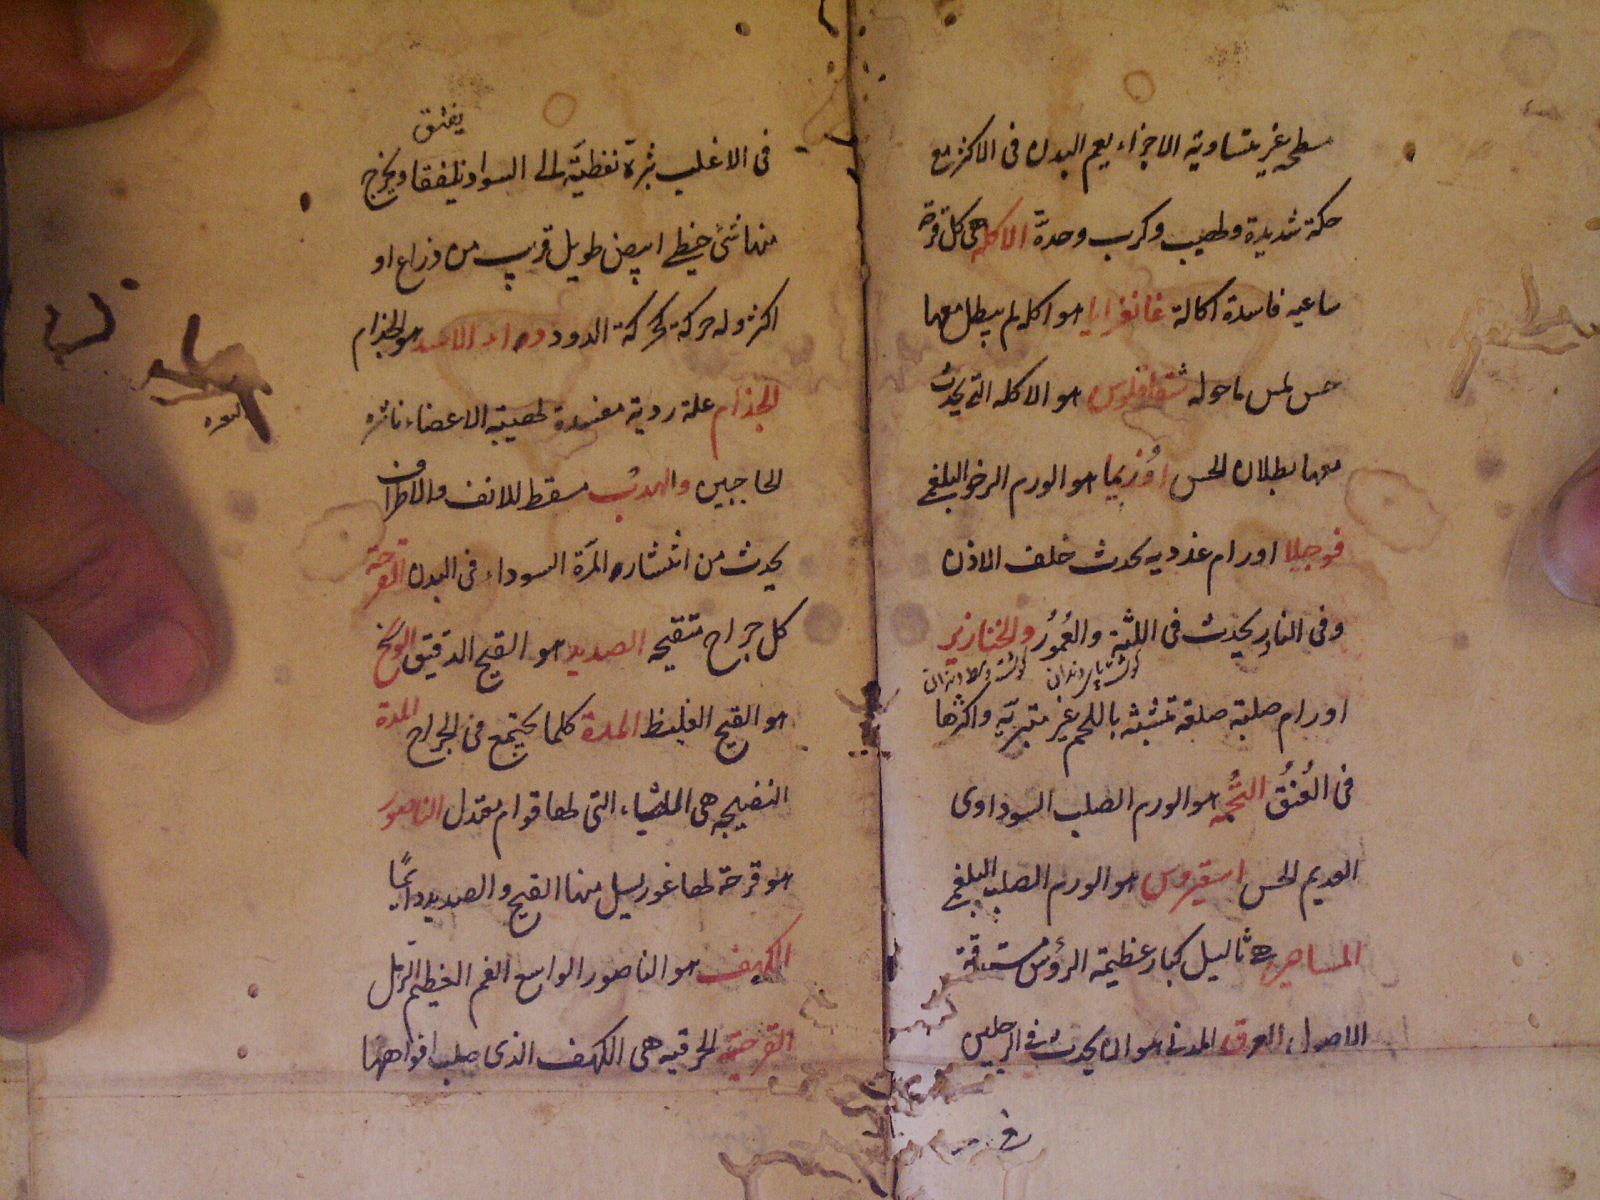 سطحه غير متساوية الاجزاء يعم البدن فى الاكثر مع
حكة شديدة ولهيب وكرب وحدة الاكله هى كل قرحة
ساعيه فاسدة اكالة غانغرايا هو اكله لم يبطل معها
حس لمس ماحوله شقاقلوس هو الاكله التى يحدث
معها بطلان الحس اوزيما هو الورم الرخو البلغمى
فوجيلا اورام غدديه يحدث خلف الاذن
وفى النادر يحدث فى اللثة والعُمُورُ والخنازير
گوشت دندان
اورام صلبة متشبثه باللحم غير متبرية واكثرها
فى العُنُقُ هو الورم الصلب السوداوى
العديم الحس اسقيروس هو الورم الصلب البلغمى
المسامير هى ثاليل كبار عظيمة الرؤس مستدقة
الاصول العرق المدنى هو ان يحدث فى الرجلين
فى
يفئق
فى الاغلب بثرة نفطيّة الى السواد ويخرج
منها شئ خيطى ابيض طويل قريب من ذراع او
اكثر وله حركة كحركة الدود داء الاسد هو الجذام
الجذام علة ردية مفسدة لهيئة الاعضاء ناثره
الحاجبين والهدب مسقط للانف والاطراف
يحدث من انتشار المرّة السوداء فى البدن القرحة
كل جراح متقيحه الصديد هو القيح الدقيق الوسخ
هو القيح الغليظ المدة كلما يجتمع فى الجراح المدة
النضيجه هى الملساء التى لها قوام معتدل الناصور
هو قرحة لها غور يسل منها القيح والصديد دائمًا
الكهف هو الناصور الواسع الفم
القرحة الخرقيه هى الكهف الذى صلب افواهها